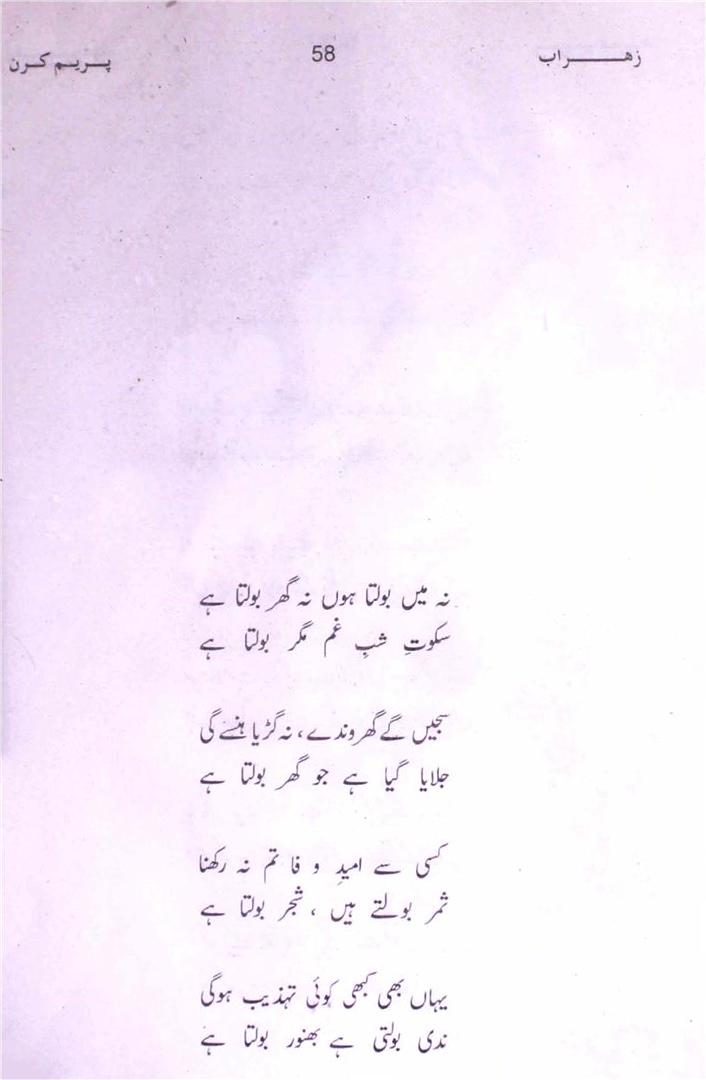 زهراب 58 پریم کرن
نہ میں بولتا ہوں نہ گھر بولتا ہے
سکوتِ شبِ غم مگر بولتا ہے
سجیں گے گھروندے، نہ گڑیا ہنسے گی
جلایا گیا ہے جو گھر بولتا ہے
کسی سے امیدِ وفا تم نہ رکھنا
ثمر بولتے ہیں، شجر بولتا ہے
یہاں بھی کبھی کوئی تہذیب ہوگی
ندی بولتی ہے بھنور بولتا ہے